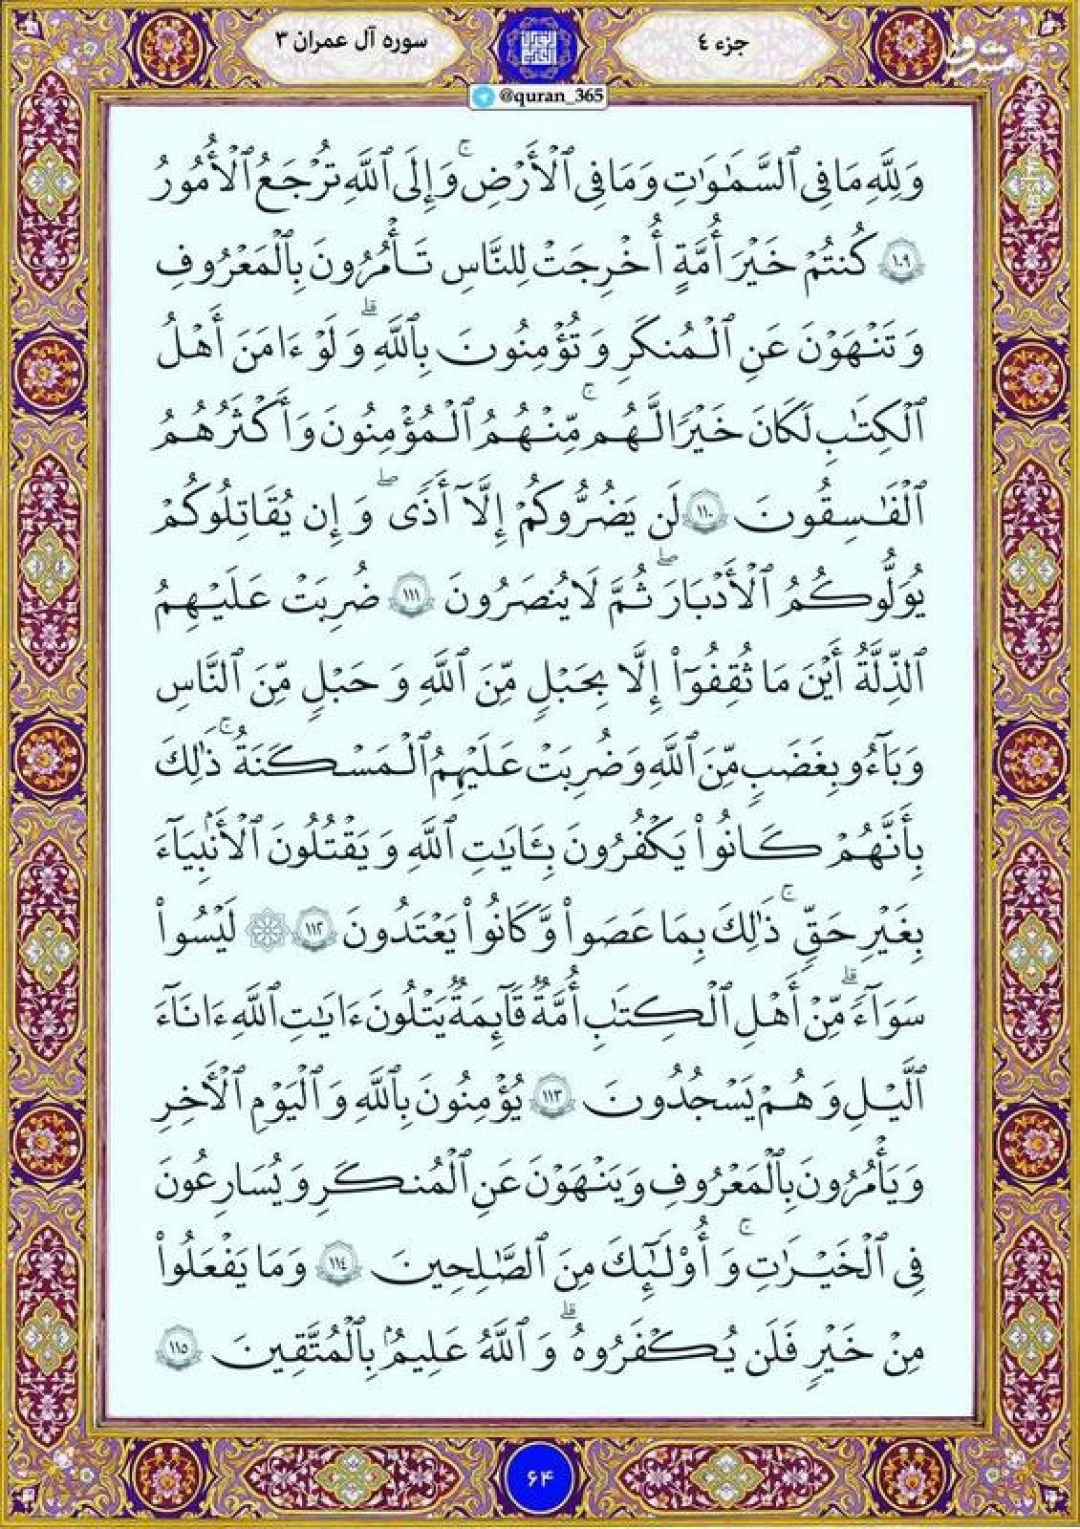 جزء ٤
سوره آل عمران ٣
@quran_365
وَلِلَّهِ مَا فِي ٱلسَّمَٰوَٰتِ وَمَا فِي ٱلْأَرْضِ ۚ وَإِلَى ٱللَّهِ تُرْجَعُ ٱلْأُمُورُ
١٠٩ كُنتُمْ خَيْرَ أُمَّةٍ أُخْرِجَتْ لِلنَّاسِ تَأْمُرُونَ بِٱلْمَعْرُوفِ
وَتَنْهَوْنَ عَنِ ٱلْمُنكَرِ وَتُؤْمِنُونَ بِٱللَّهِ ۗ وَلَوْ ءَامَنَ أَهْلُ
ٱلْكِتَٰبِ لَكَانَ خَيْرًا لَّهُم ۚ مِّنْهُمُ ٱلْمُؤْمِنُونَ وَأَكْثَرُهُمُ
ٱلْفَٰسِقُونَ ١١٠ لَن يَضُرُّوكُمْ إِلَّآ أَذًى ۖ وَإِن يُقَاتِلُوكُمْ
يُوَلُّوكُمُ ٱلْأَدْبَارَ ۖ ثُمَّ لَا يُنصَرُونَ ١١١ ضُرِبَتْ عَلَيْهِمُ
ٱلذِّلَّةُ أَيْنَ مَا ثُقِفُوٓا۟ إِلَّا بِحَبْلٍ مِّنَ ٱللَّهِ وَحَبْلٍ مِّنَ ٱلنَّاسِ
وَبَآءُو بِغَضَبٍ مِّنَ ٱللَّهِ وَضُرِبَتْ عَلَيْهِمُ ٱلْمَسْكَنَةُ ۚ ذَٰلِكَ
بِأَنَّهُمْ كَانُوا۟ يَكْفُرُونَ بِـَٔايَٰتِ ٱللَّهِ وَيَقْتُلُونَ ٱلْأَنۢبِيَآءَ
بِغَيْرِ حَقٍّ ۚ ذَٰلِكَ بِمَا عَصَوا۟ وَّكَانُوا۟ يَعْتَدُونَ ١١٢ ۞ لَيْسُوا۟
سَوَآءً ۗ مِّنْ أَهْلِ ٱلْكِتَٰبِ أُمَّةٌ قَآئِمَةٌ يَتْلُونَ ءَايَٰتِ ٱللَّهِ ءَانَآءَ
ٱلَّيْلِ وَهُمْ يَسْجُدُونَ ١١٣ يُؤْمِنُونَ بِٱللَّهِ وَٱلْيَوْمِ ٱلْأَخِرِ
وَيَأْمُرُونَ بِٱلْمَعْرُوفِ وَيَنْهَوْنَ عَنِ ٱلْمُنكَرِ وَيُسَارِعُونَ
فِي ٱلْخَيْرَٰتِ ۚ وَأُو۟لَٰٓئِكَ مِنَ ٱلصَّٰلِحِينَ ١١٤ وَمَا يَفْعَلُوا۟
مِنْ خَيْرٍ فَلَن يُكْفَرُوهُ ۗ وَٱللَّهُ عَلِيمٌۢ بِٱلْمُتَّقِينَ ١١٥
۶۴